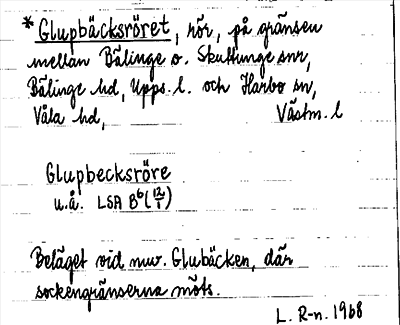 * Glupbäcksröret, rör, på gränsen
mellan Bälinge o. Skuttunge snr,
Bälinge hd, Upps. l. och Harbo sn,
Våla hd, Västm. l
Glupbecksröre
u.å. LSA B6 (12/1)
Beläget vid nuv. Glubäcken, där
sockengränserna möts.
L. R-n. 1968